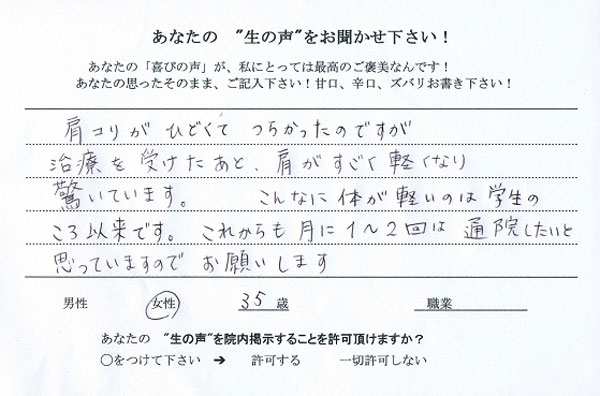 あなたの "生の声"をお聞かせ下さい！
あなたの「喜びの声」が、私にとっては最高のご褒美なんです！
あなたの思ったそのまま、ご記入下さい！甘口、辛口、ズバリお書き下さい！
肩コリが ひどくて つらかったのですが
治療を受けたあと、肩がすごく軽くなり
驚いています。 こんなに体が軽いのは学生の
ころ以来です。これからも月に1～2回は通院したいと
思っていますので お願いします
男性 女性 35歳 職業
あなたの "生の声"を院内掲示することを許可頂けますか？
〇をつけて下さい → 許可する 一切許可しない